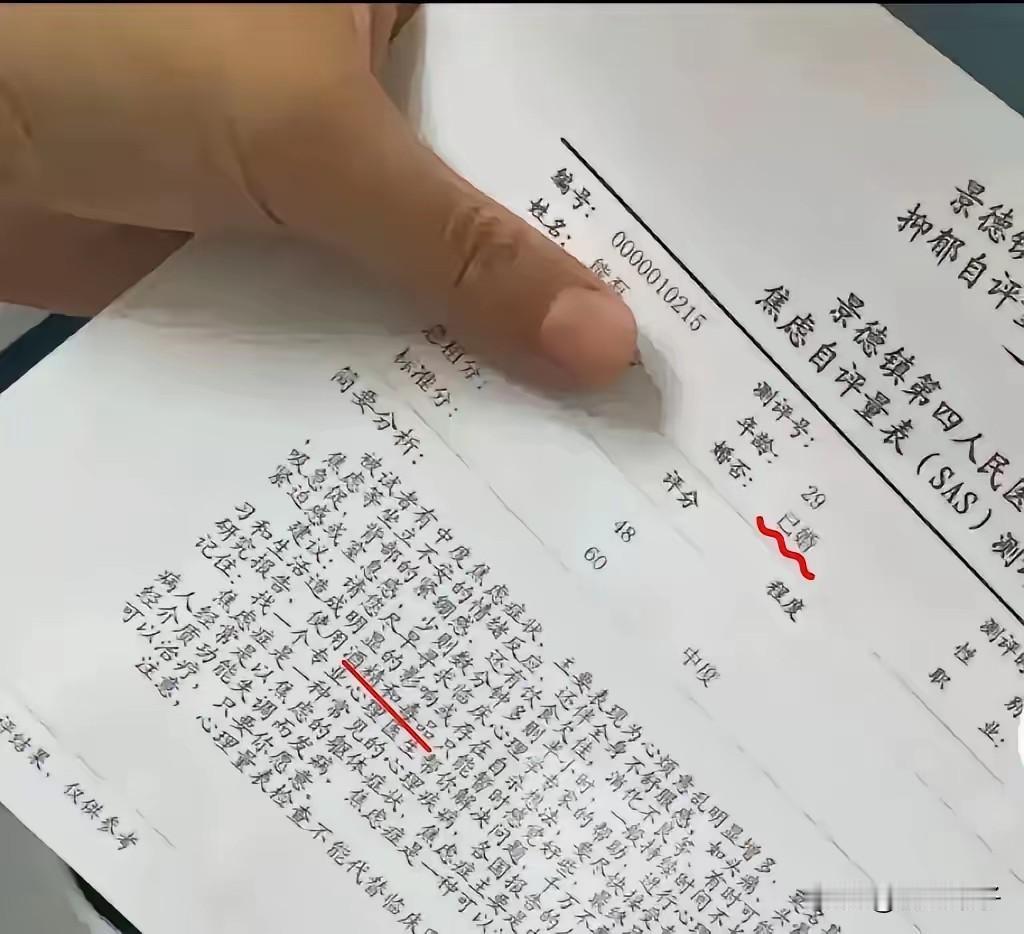 景德镇
抑郁自评量
景德镇第四人民医
焦虑自评量表（SAS）测
编号： 0000010215 测评号： 测评
姓名： 年龄： 29 性 别
婚否： 已婚 职 业：
评分 程度
总粗分： 48
标准分： 60 中度
简要分析：
被试者有中度焦虑症状，主要表现为心烦意乱明显增多，
焦虑等坐立不安的情绪反应，还伴全身不舒服感，如头痛、
吸急促，背部的紧绷感，还有饮食欠佳，消化不良等，有时可能
紧迫感或窒息感，少则数分钟多则半小时，一般持续时间不
建议：请您尽早寻求临床心理专家的帮助，进行心理
习和生活造成明显的影响或存在自杀想法，要尽快接受
研究报告，使用酒精和毒品只能暂时感觉好些，最终
记住：找一个专业心理医生帮你解决问题，千万不
焦虑症是一种常见的心理疾病，各国报告的
病人经常是以焦虑的躯体症状，焦虑症主要是
经介质功能失调而发病，焦虑症是一种可以
可以治疗，只要你愿意。
注意，心理量表检查不能代替临床
评结果，仅供参考